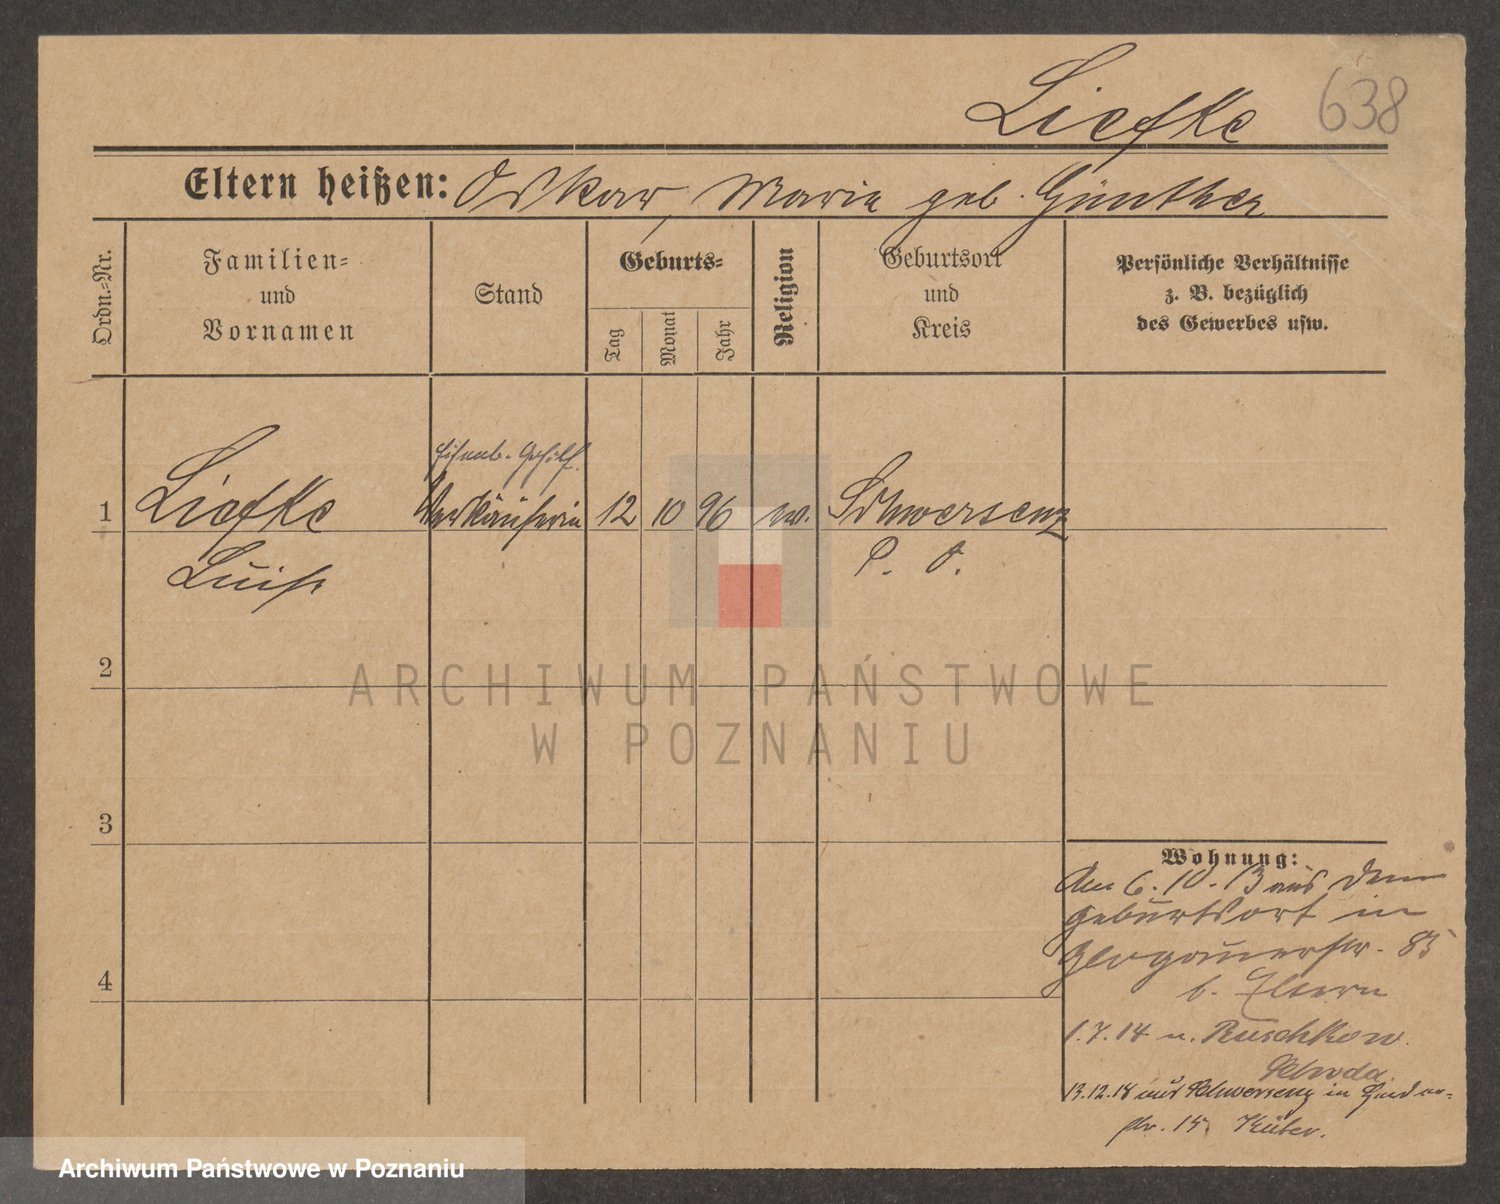 Liefke 638
Eltern heißen: Oskar, Marie geb. Günther
Ordn.=Nr.
Familien=
und
Vornamen
Stand
Geburts=
Tag
Monat
Jahr
Religion
Geburtsort
und
Kreis
Persönliche Verhältnisse
z. B. bezüglich
des Gewerbes usw.
Eisenb. Gehilf.
1 Liefke Verkäuferin 12 10 96 w. Schwersenz
Luise P. O.
2
3
4
Wohnung:
Am 6.10.13 aus dem
Geburtsort in
Glogauerstr. 85
b. Eltern
1.7.14 n. Ruschkow
Schroda
13.12.18 aus Schwersenz in
str. 15
ARCHIWUM PAŃSTWOWE
W POZNANIU
Archiwum Państwowe w Poznaniu